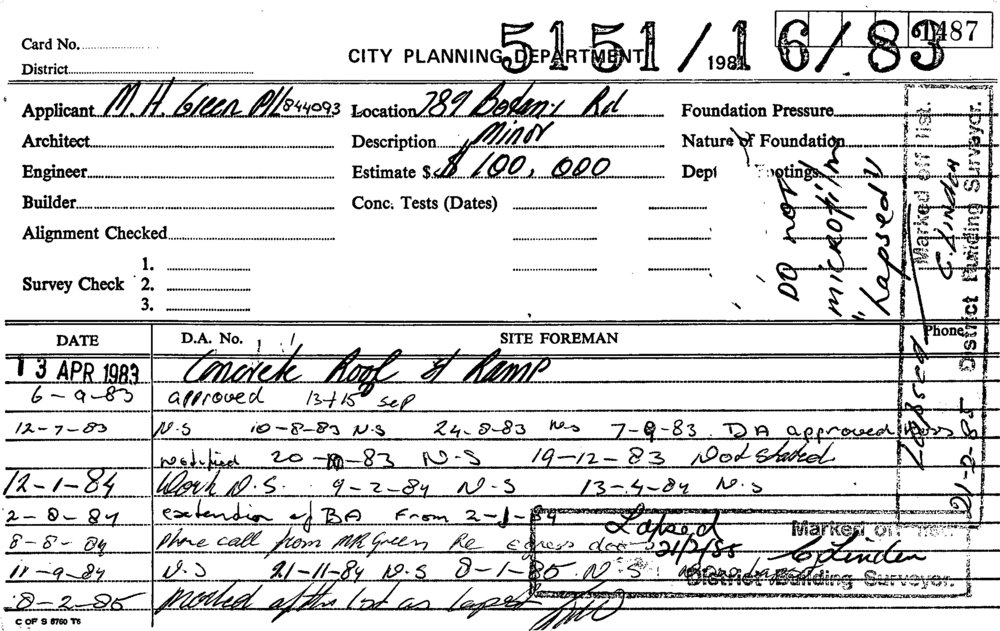 Card No.
District
CITY PLANNING DEPARTMENT
5151/1983
16/83
1487
Applicant M. H. Green P/L 844093 Location 789 Botany Rd Foundation Pressure
Architect Description Minor Nature of Foundation
Engineer Estimate $ 100,000 Footings
Builder Conc. Tests (Dates)
Alignment Checked
1.
Survey Check 2.
3.
DO not
microfilm
"Lapsed"
Lapsed
Marked off list.
C. Linden
District Building Surveyor.
21-2-85
DATE D.A. No. SITE FOREMAN Phone
13 APR 1983 Concrete Roof & Ramp
6-9-83 approved 13+15 Sep
12-7-83 N.S 10-8-83 N.S 24-8-83 N.S 7-9-83 DA approved
notified 20-10-83 N-S 19-12-83 Not started
12-1-84 Work N.S. 9-2-84 N-S 13-4-84 N.S
2-8-84 extension of BA From 2-1-84
8-8-84 phone call from MR Green Re egress
11-9-84 N.S 21-11-84 N.S 8-1-85 N-S
8-2-85 marked off the list as lapsed
Lapsed
21/2/85
Marked off
C Linden
District Building Surveyor.
C OF S 8760 T6